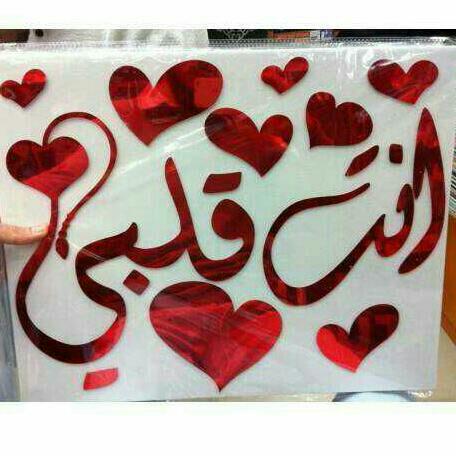 انت قلبي